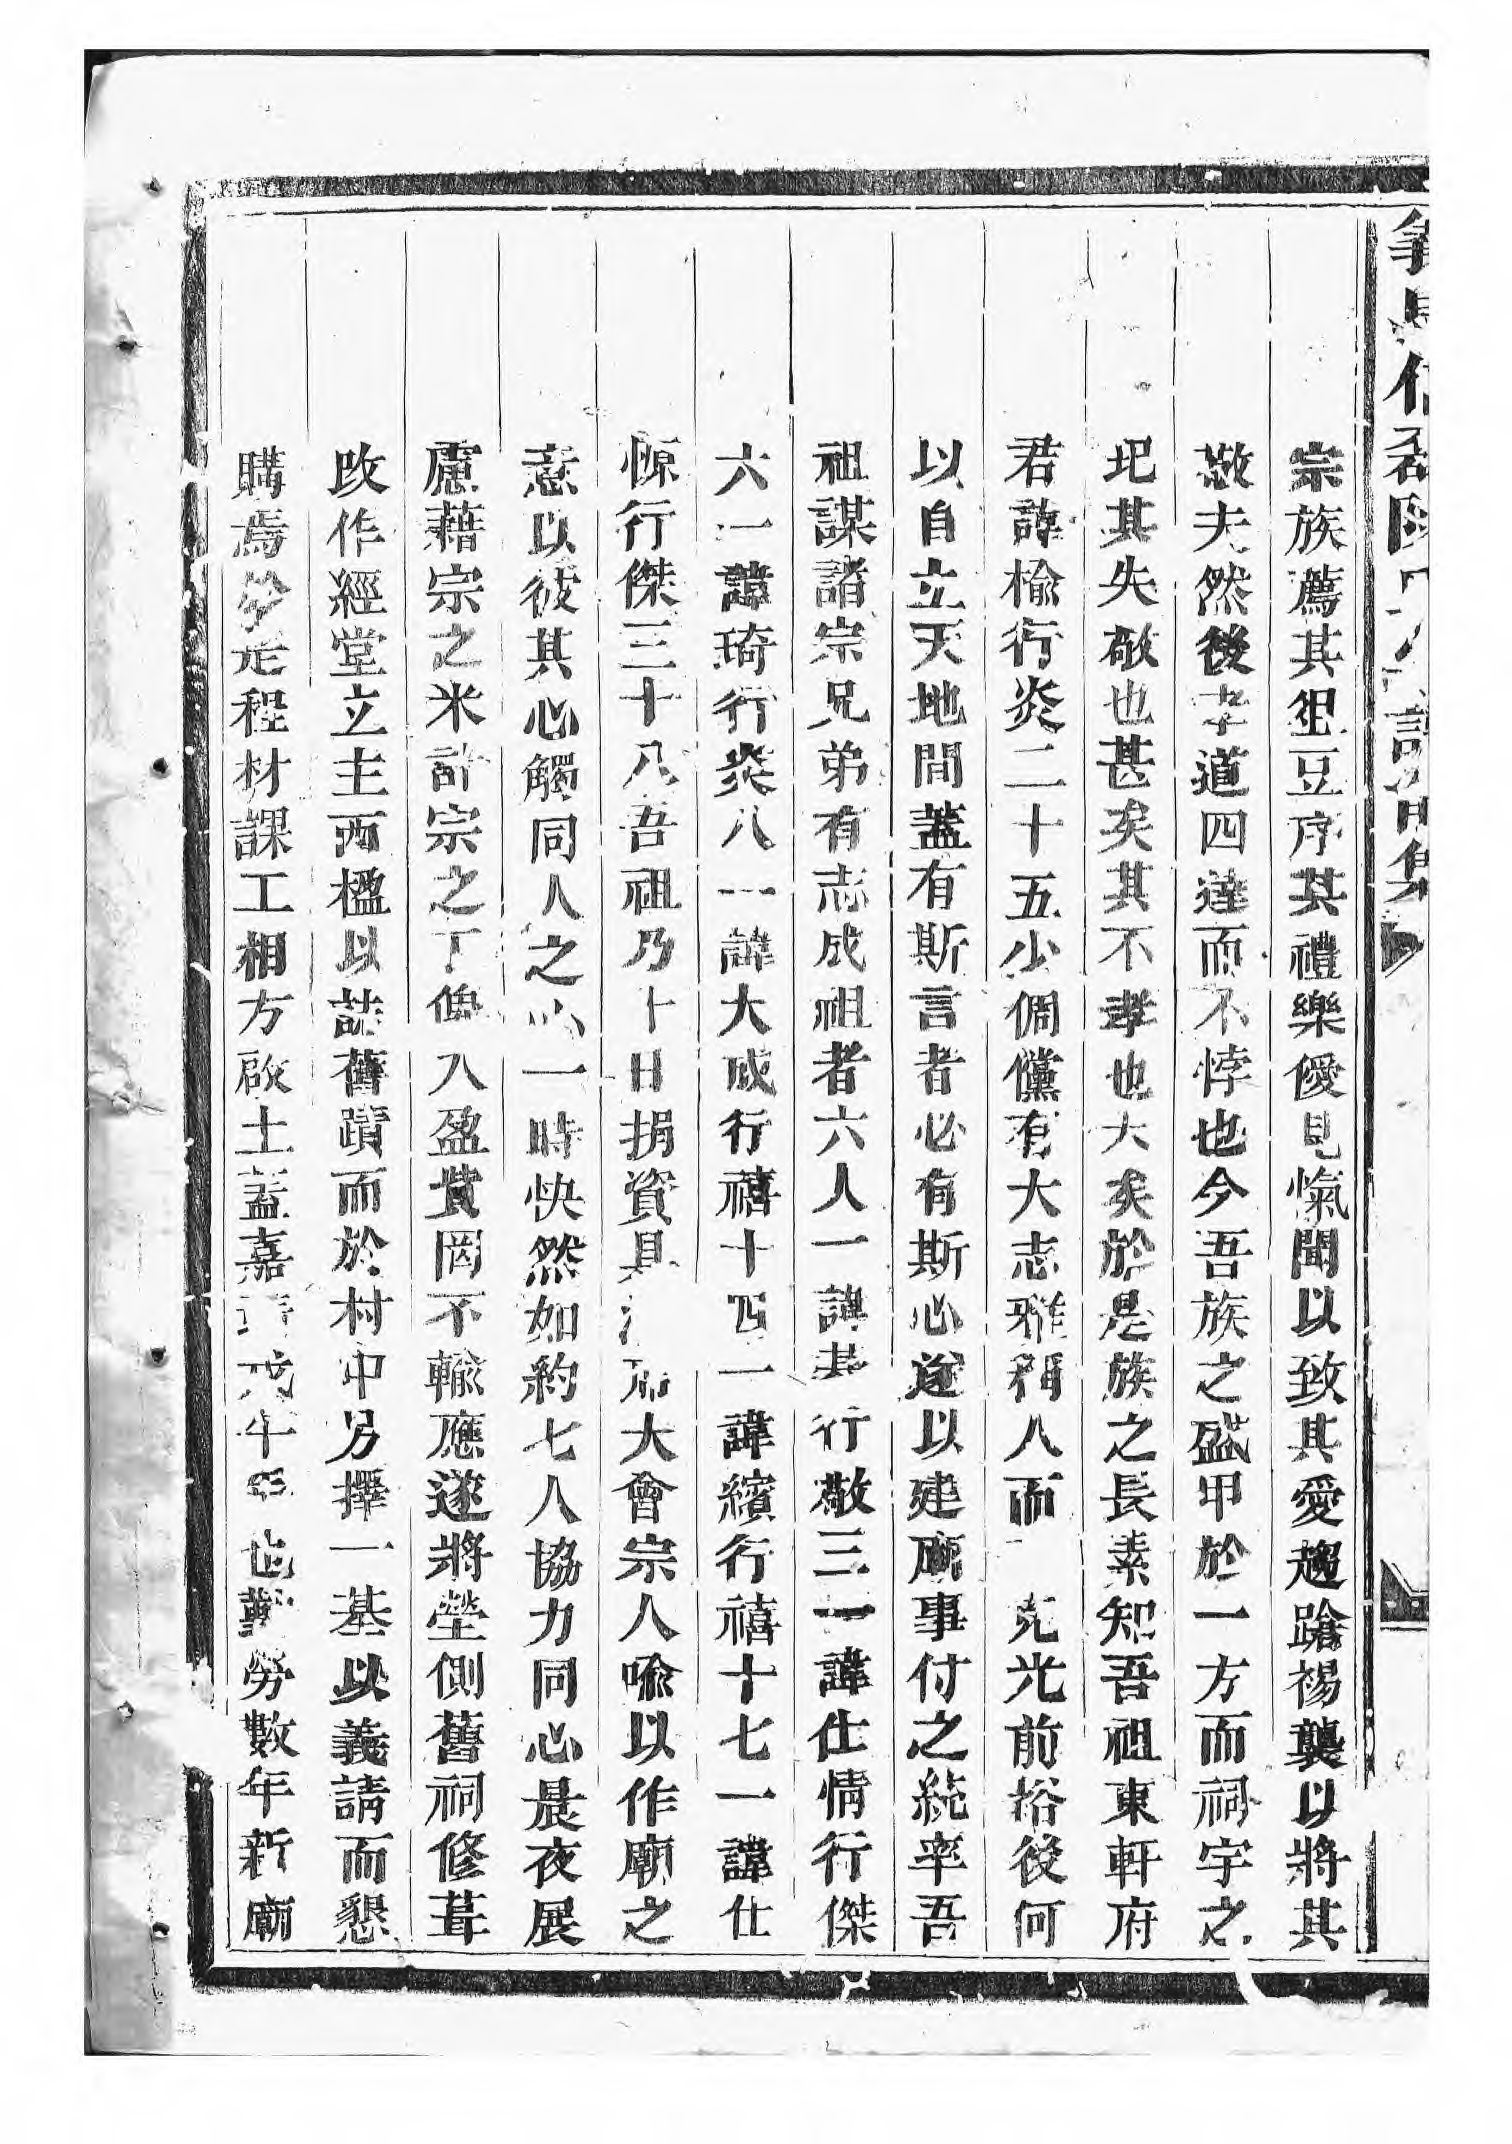 宗族薦其俎豆序其禮樂僾見愾聞以致其愛趨蹌裼襲以將其
敬夫然後孝道四達而不悖也今吾族之盛甲於一方而祠宇之
圯其失敬也甚矣其不孝也大矣於是族之長素知吾祖東軒府
君諱楡行炎二十五少倜儻有大志雅稱人而 克光前裕後何
以自立天地間蓋有斯言者必有斯心遂以建廟事付之統率吾
祖謀諸宗兄弟有志成祖者六人一諱 行敬三一諱仕情行傑
六一諱琦行炎八一諱大成行禧十四一諱繽行禧十七一諱仕
惊行傑三十八吾祖乃卜日捐資具 大會宗人喩以作廟之
意以彼其心觸同人之心一時快然如約七人協力同心晨夜展
慮藉宗之米計宗之丁 入盈費罔不輸應遂將塋側舊祠修葺
改作經堂立主西楹以誌舊蹟而於村中另擇一基以義請而懇
購焉 程材課工相方啟土蓋嘉靖戊午 也勤勞數年新廟